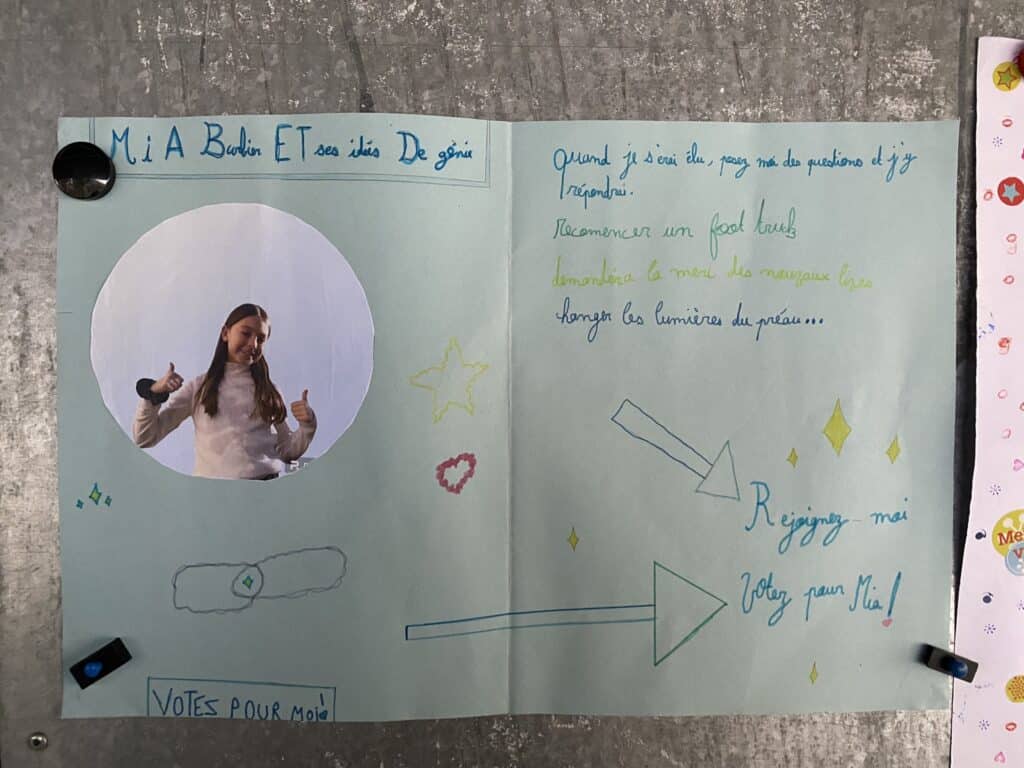 MiA Barbier ET ses idées De génie
VOTES POUR Moi!
Quand je s'erai élu, posez moi des questions et j'y
répondrai.
recomencer un food truck
demandera la meri des nouveaux
hanger les lumières du préau...
Rejoignez-moi
Votez pour Mia!
Me
V